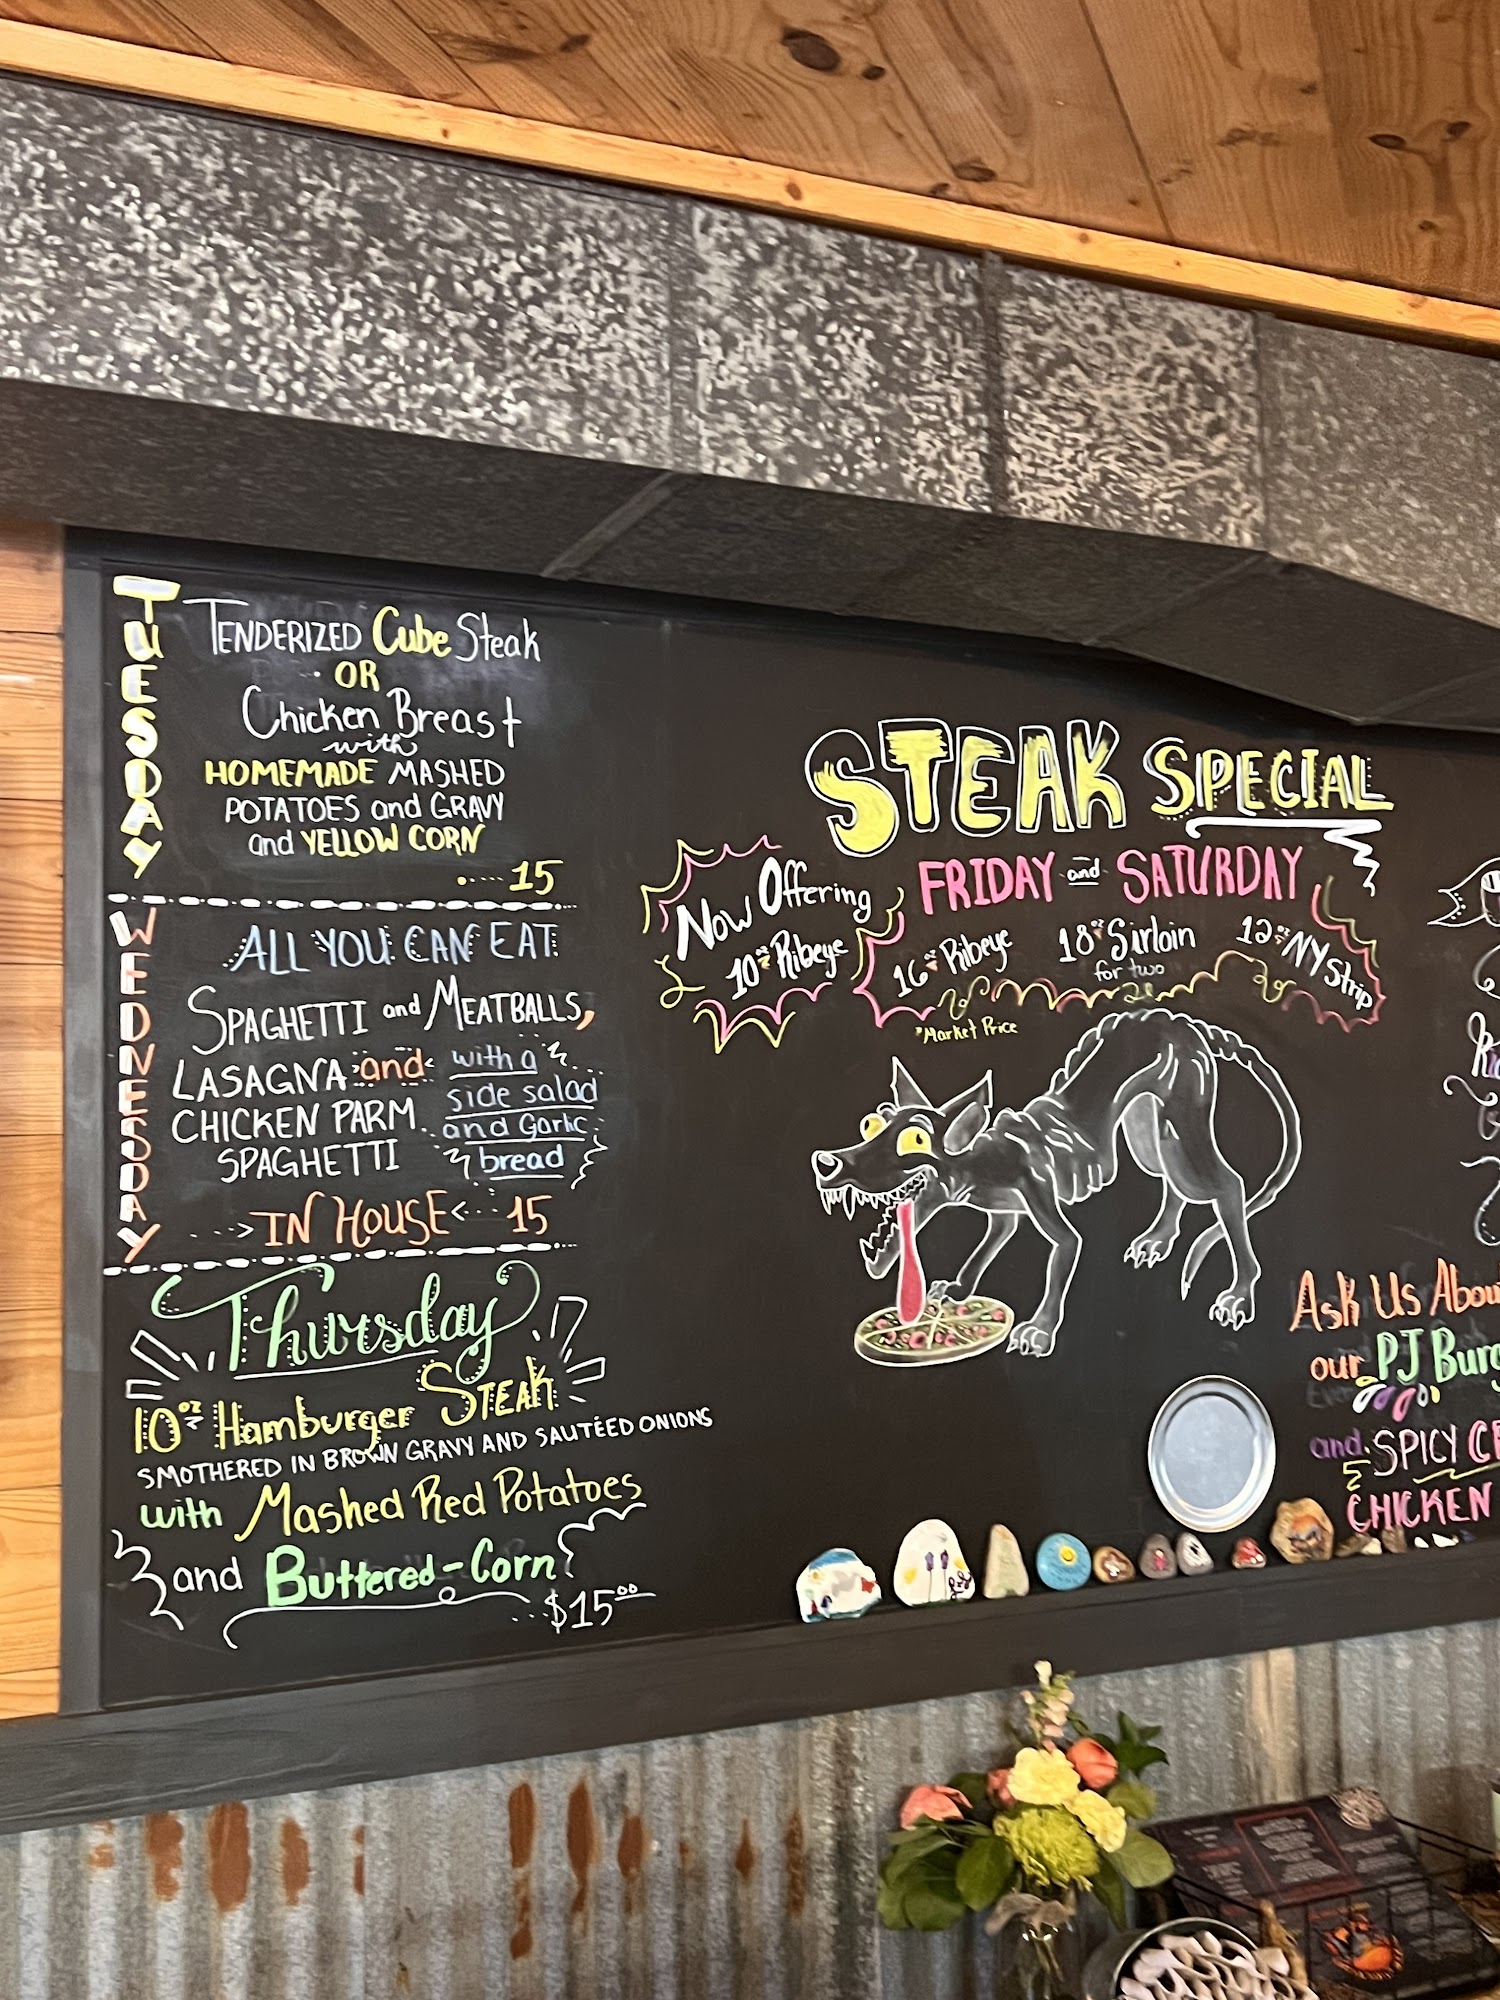 TUESDAY
TENDERIZED Cube Steak
OR
Chicken Breast
with
HOMEMADE MASHED
POTATOES and GRAVY
and YELLOW CORN
15
WEDNESDAY
ALL YOU CAN EAT
SPAGHETTI and MEATBALLS,
LASAGNA and
CHICKEN PARM
SPAGHETTI
with a
side salad
and Garlic
bread
IN HOUSE 15
Thursday
10oz Hamburger STEAK
SMOTHERED IN BROWN GRAVY AND SAUTÉED ONIONS
with Mashed Red Potatoes
and Buttered-Corn
$15.00
STEAK SPECIAL
FRIDAY and SATURDAY
Now Offering
10oz Ribeye
16oz Ribeye
18oz Sirloin
for two
12oz NY Strip
*Market Price
Ask Us
our PJ
and SPICY
CHICKEN